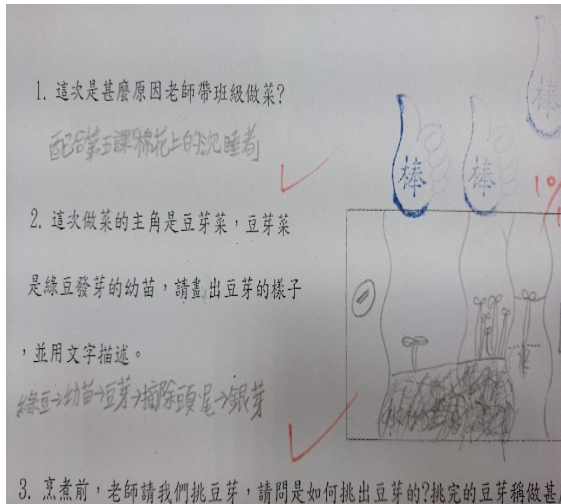 1. 這次是甚麼原因老師帶班級做菜?
配合第五課棉花上的沉睡者
棒
棒
棒
10/1
2. 這次做菜的主角是豆芽菜，豆芽菜
是綠豆發芽的幼苗，請畫出豆芽的樣子
，並用文字描述。
綠豆→幼苗→豆芽→摘除頭尾→銀芽
3. 烹煮前，老師請我們挑豆芽，請問是如何挑出豆芽的?挑完的豆芽稱做甚